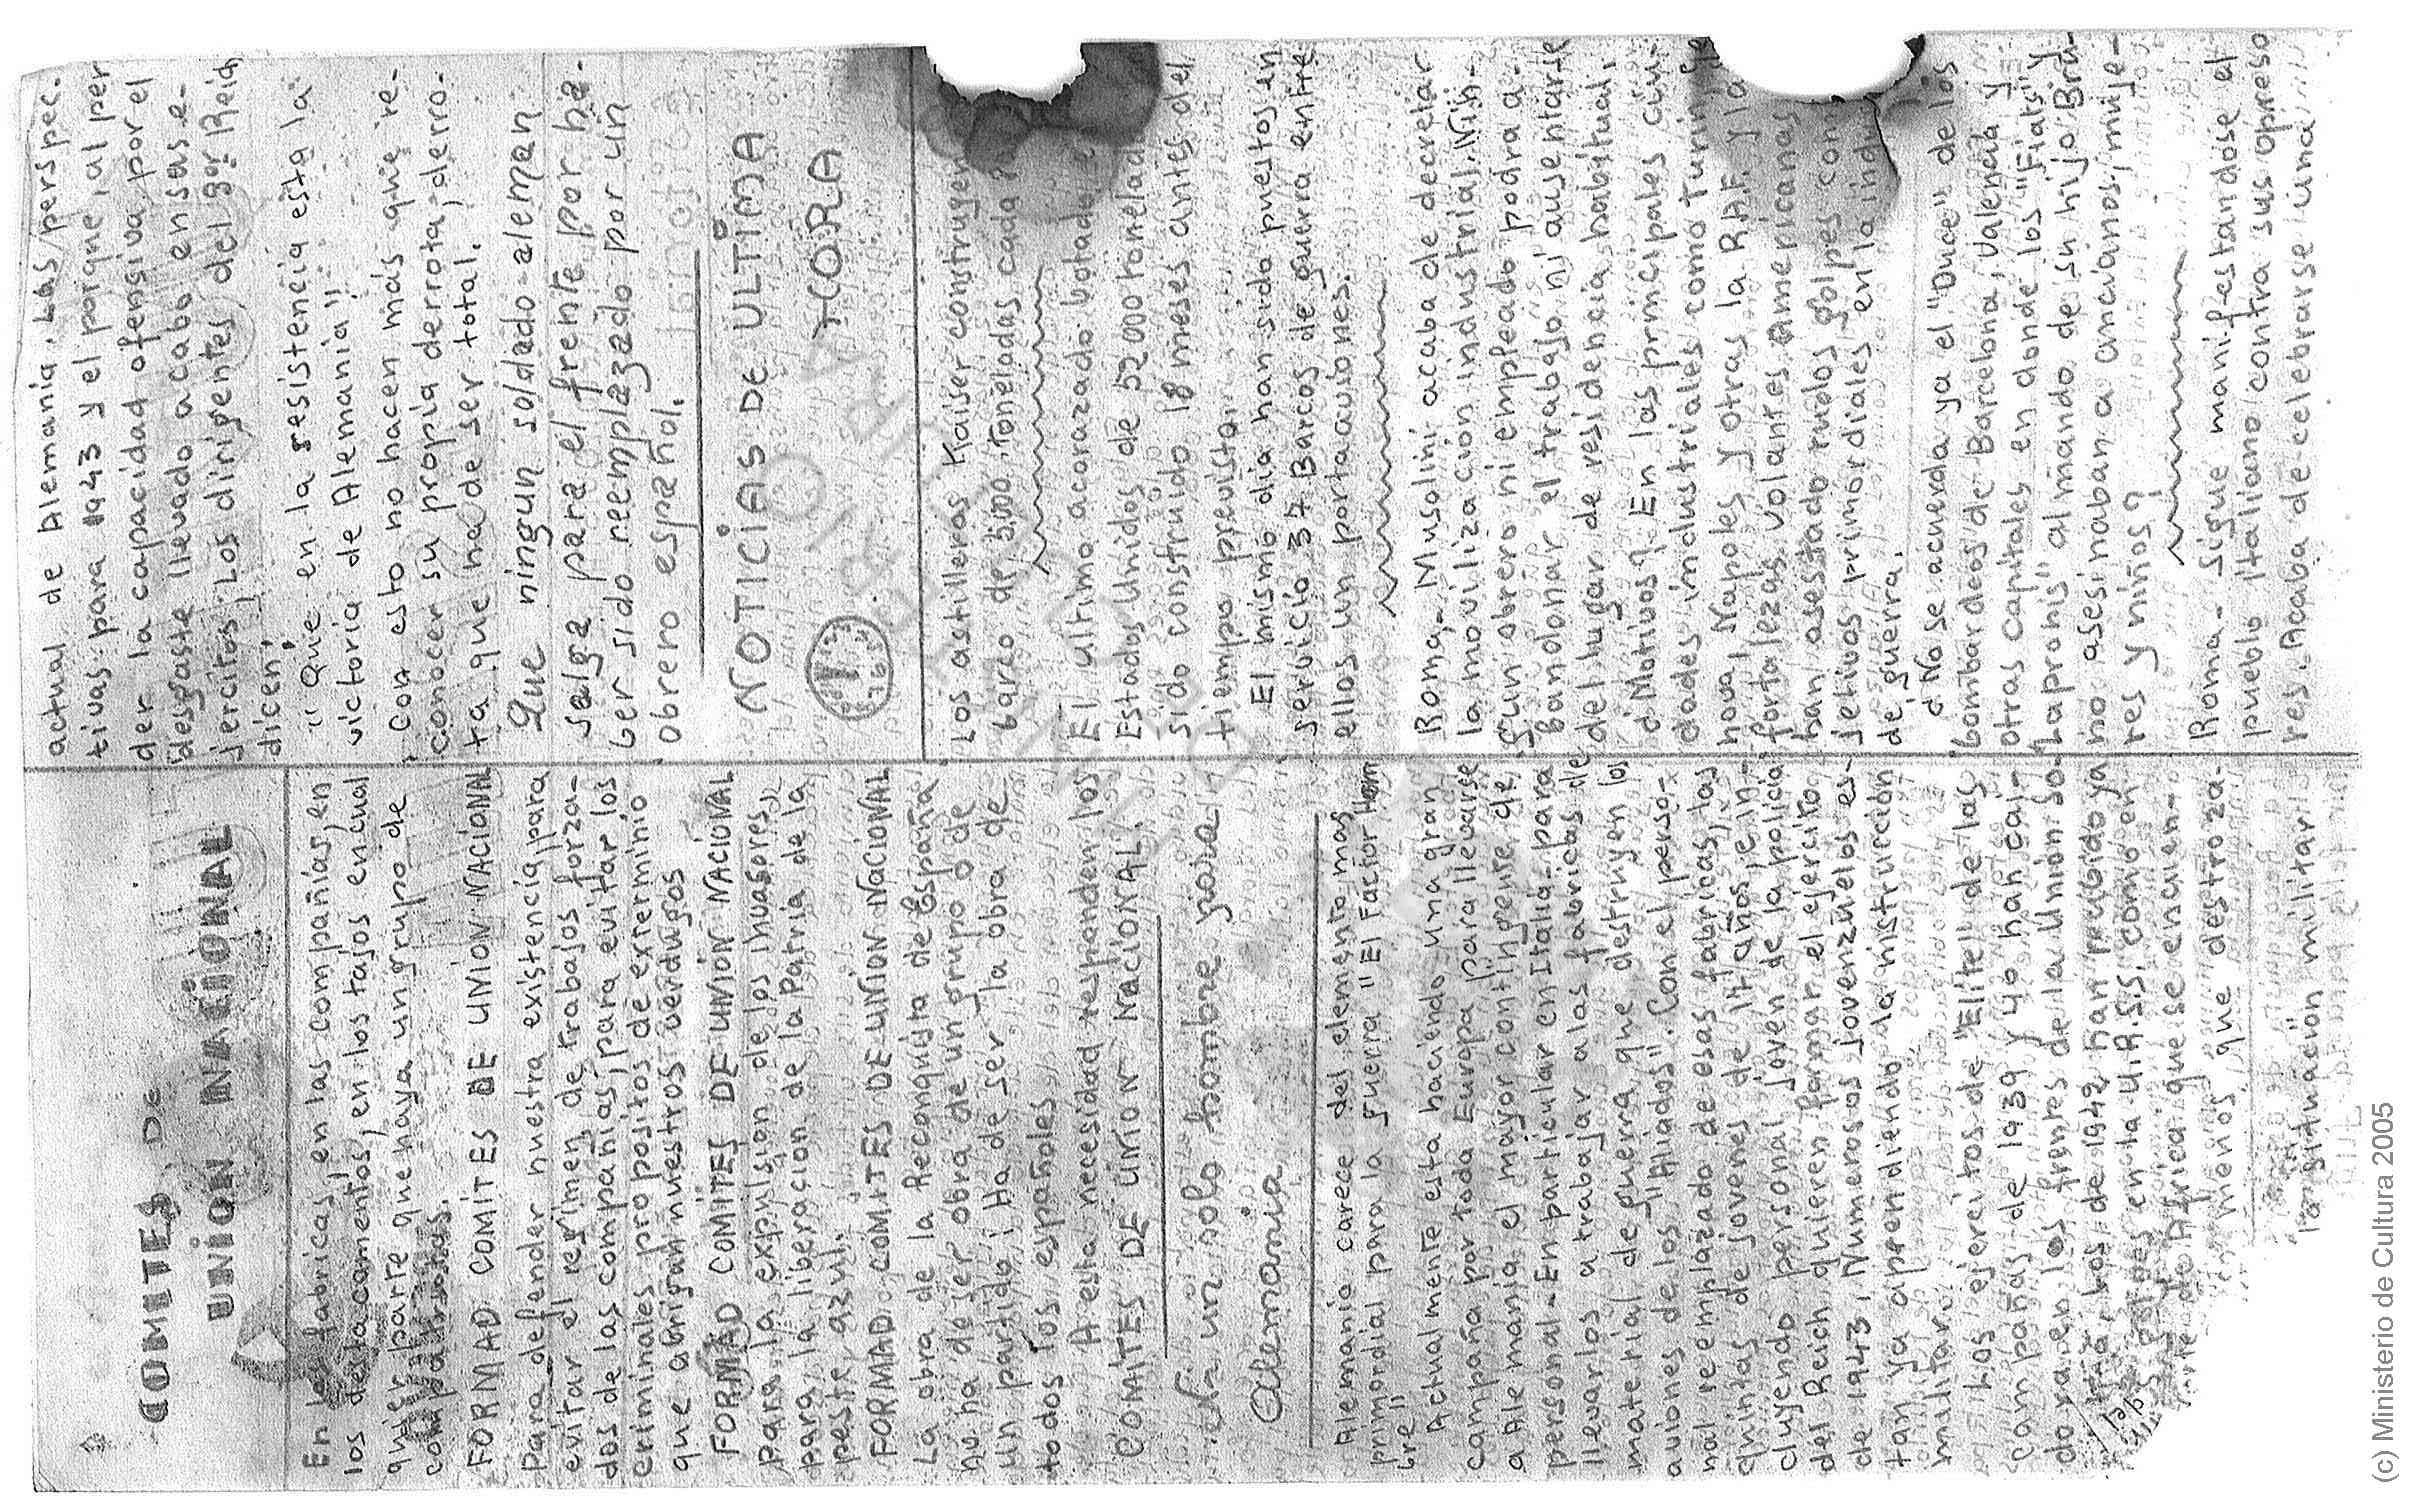 COMITES DE
UNIÓN NACIONAL
En las fabricas, en las compañias, en
los destacamentos, en los tajos, en cual
quier parte que haya un grupo de
compatriotas.
FORMAD COMITES DE UNIÓN NACIONAL
Para defender nuestra existencia, para
evitar el regimen de trabajos forza-
dos de las compañias, para evitar los
criminales propositos de exterminio
que abrigan nuestros verdugos
FORMAD COMITES DE UNIÓN NACIONAL
para la expulsion de los invasores,
para la liberacion de la Patria de la
peste azul.
FORMAD COMITES DE UNIÓN NACIONAL
La obra de la Reconquista de España
no ha de ser obra de un grupo o de
un partido ¡Ha de ser la obra de
todos los españoles
A esta necesidad responden los
COMITES DE UNION NACIONAL.
Ni un solo hombre para
Alemania
Alemania carece del elemento mas
primordial para la guerra "El Factor Hom
bre"
Actualmente esta haciendo una gran
campaña por toda Europa para llevarse
a Alemania el mayor contingente de
personal - En particular en Italia - para
llevarlos a trabajar a las fabricas de
material de guerra que destruyen los
aviones de los "Aliados". Con el perso-
nal reemplazado de esas fabricas, las
quintas de jovenes de 17 años, e in-
cluyendo personal joven de la policia
del Reich quieren formar el ejercito
de 1943. Numerosos jovenzuelos es-
tan ya aprendiendo la instrucción
militar.
Los ejercitos de "Elite" de las
campañas de 1939 y 40 han cai-
do ya en los frentes de la Union So-
vietica, los de 1942 han recibido ya
en la U.R.S.S. como en
de Africa que se encuen-
menos que destroza-
la situacion militar
actual de Alemania. Las perspec-
tivas para 1943 y el porque, al per
der la capacidad ofensiva por el
desgaste llevado a cabo en sus e-
jercitos, los dirigentes del gor Reich
dicen:
"Que en la resistencia esta la
victoria de Alemania"
Con esto no hacen más que re-
conocer su propia derrota, derro-
ta que ha de ser total.
Que ningun soldado aleman
salga para el frente por ha-
ber sido reemplazado por un
obrero español.
NOTICIAS DE ULTIMA
HORA
Los astilleros Kaiser construyen
barco de 5.000 Toneladas cada
El ultimo acorazado botado
Estados Unidos de 52000 tonelad
sido construido 18 meses antes del
tiempo previsto.
El mismo dia han sido puestos en
servicio 37 Barcos de guerra entre
ellos un portaaviones.
Roma,- Musolini acaba de decretar
la movilizacion industrial. Nin-
gun obrero ni empleado podra a-
bandonar el trabajo ni ausentarse
del lugar de residencia habitual.
¿Motivos? En las principales ciu-
dades industriales como Turin, Ge
nova, Napoles y otras la RAF. y la
fortalezas volantes americanas
han asestado rudos golpes con
jetivos primordiales en la indu
de guerra.
¿No se acuerda ya el "Duce" de los
bombardeos de Barcelona, Valencia y
otras capitales en donde los "Fiats" y
"Capronis" al mando de su hijo Bru-
no asesinaban a ancianos, muje-
res y niños?
Roma - Sigue manifestandose el
pueblo italiano contra sus opreso
res. Acaba de celebrarse una
(c) Ministerio de Cultura 2005